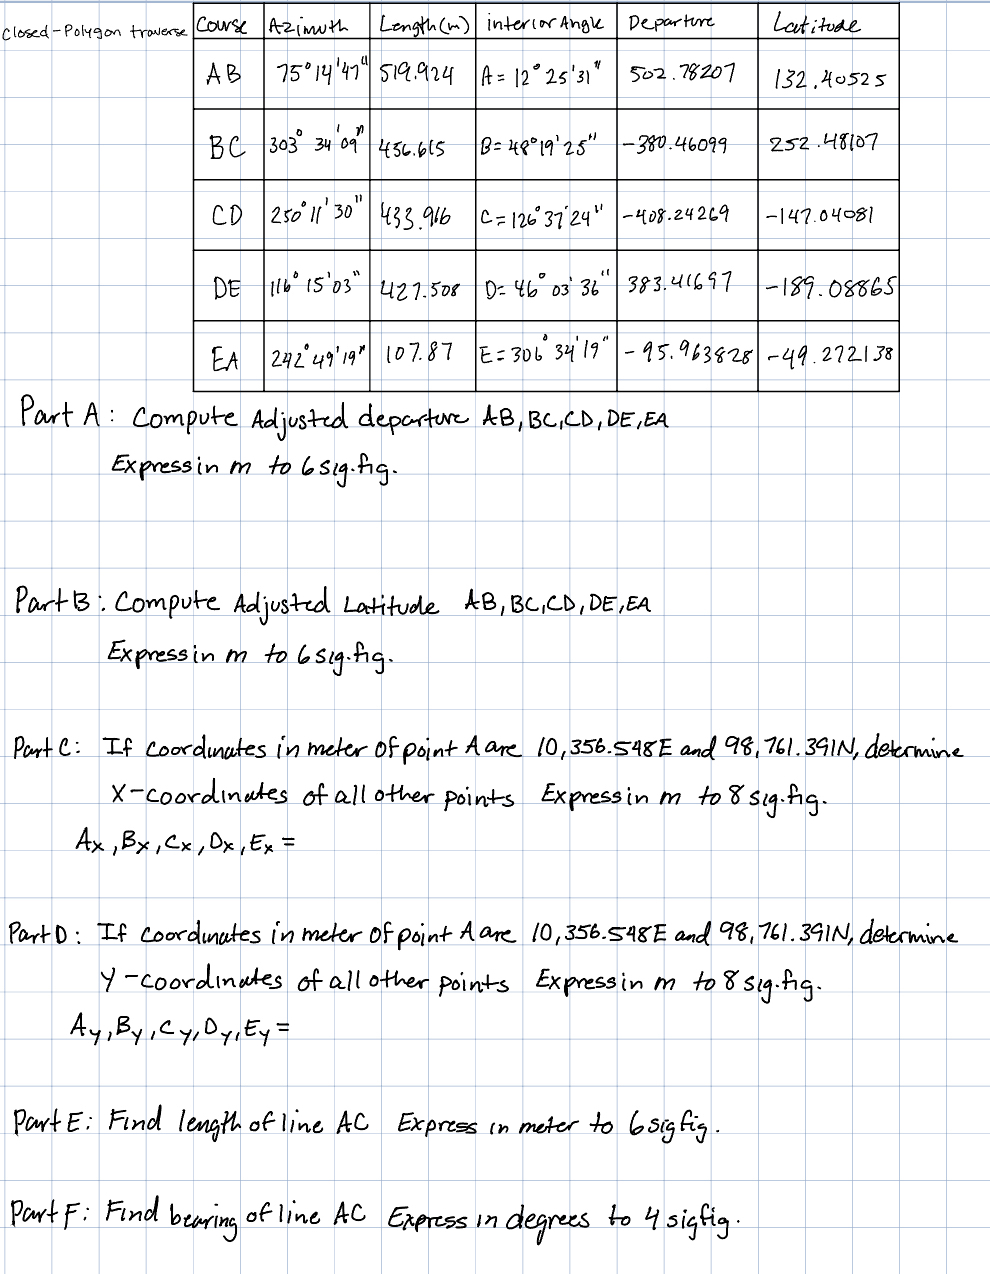 Closed-Polygon traverse Course Azimuth Length(m) interior Angle Departure Latitude
AB 75°14'47" 519.924 A=12°25'31" 502.78207 132.40525
BC 303°34'09" 456.615 B=48°19'25" -380.46099 252.48107
CD 250°11'30" 433.916 C=126°37'24" -408.24269 -147.04081
DE 116°15'03" 427.508 D=46°03'36" 383.41697 -189.08865
EA 242°49'19" 107.87 E=306°34'19" -95.963828 -49.272138
Part A: Compute Adjusted departure AB,BC,CD,DE,EA
Express in m to 6 sig.fig.
Part B: Compute Adjusted Latitude AB,BC,CD,DE,EA
Express in m to 6 sig.fig.
Part C: If coordinates in meter of point A are 10,356.548E and 98,761.391N, determine
X-coordinates of all other points Express in m to 8 sig.fig.
Ax,Bx,Cx,Dx,Ex =
Part D: If coordinates in meter of point A are 10,356.548E and 98,761.391N, determine
Y-coordinates of all other points Express in m to 8 sig.fig.
Ay,By,Cy,Dy,Ey =
Part E: Find length of line AC Express in meter to 6 sigfig.
Part F: Find bearing of line AC Express in degrees to 4 sigfig.